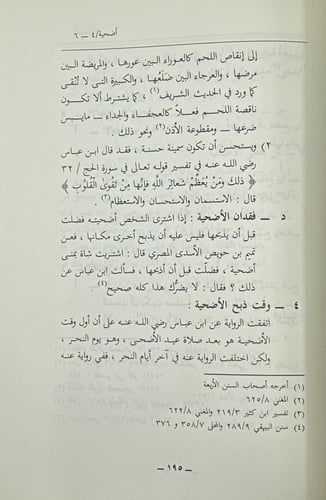 أضحية/٤ ــ ٦
إلى إنقاص اللحم كالعوراء البين عورها ، والمريضة البين
مرضها ، والعرجاء البين ضَلَعُها ، والكبيرة التى لا تُنْقى
كما ورد في الحديث الشريف(١) ، كما يشترط ألا تكون
ناقصة اللحم فعلاً كالعجفاء والجداء ــ مايبس
ضرعها ــ ومقطوعة الأذن(٢) ونحو ذلك .
٢) ويستحسن أن تكون سمينة حسنة ، فقد قال ابن عباس
رضي الله عنه في تفسير قوله تعالى في سورة الحج / ٣٢
﴿ ذلك وَمَنْ يُعَظِّمْ شَعائِرَ اللهِ فَإِنَّها مِنْ تَقْوَى القُلُوبِ ﴾
قال : الاستسمان والاستحسان والاستعظام(٣) .
د ــ فقدان الأضحية : إذا اشترى الشخص أضحيته فضلت
قبل أن يذبحها فليس عليه أن يذبح أخرى مكانها ، فعن
تميم بن حويص الأسدى المصري قال : اشتريت شاة بمنى
أضحية ، فضلّت قبل أن أذبحها ، فسألت ابن عباس عن
ذلك ؟ فقال : لا يضرُّك هذا كله صحيح(٤) .
٤ ــ وقت ذبح الأضحية :
اتفقت الرواية عن ابن عباس رضي الله عنه على أن أول وقت
الأضحية هو بعد صلاة عيد الأضحى ، وهو يوم النحر ،
ولكن اختلفت الرواية عنه في آخر أيام النحر ، ففي رواية عنه
(١) أخرجه أصحاب السنن الأربعة
(٢) المغني ٦٢٥/٨
(٣) تفسير ابن كثير ٢١٩/٣ والمغني ٦٢٢/٨
(٤) سنن البيهقي ٢٨٩/٩ والمحلى ٣٥٨/٧ و ٣٧٦
ــ ١٩٥ ــ